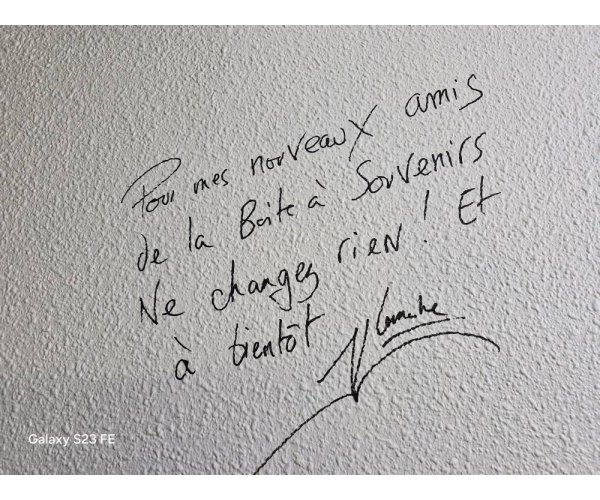 Pour mes nouveaux amis
de la Boîte à Souvenirs
Ne changez rien ! Et
à bientôt
Galaxy S23 FE